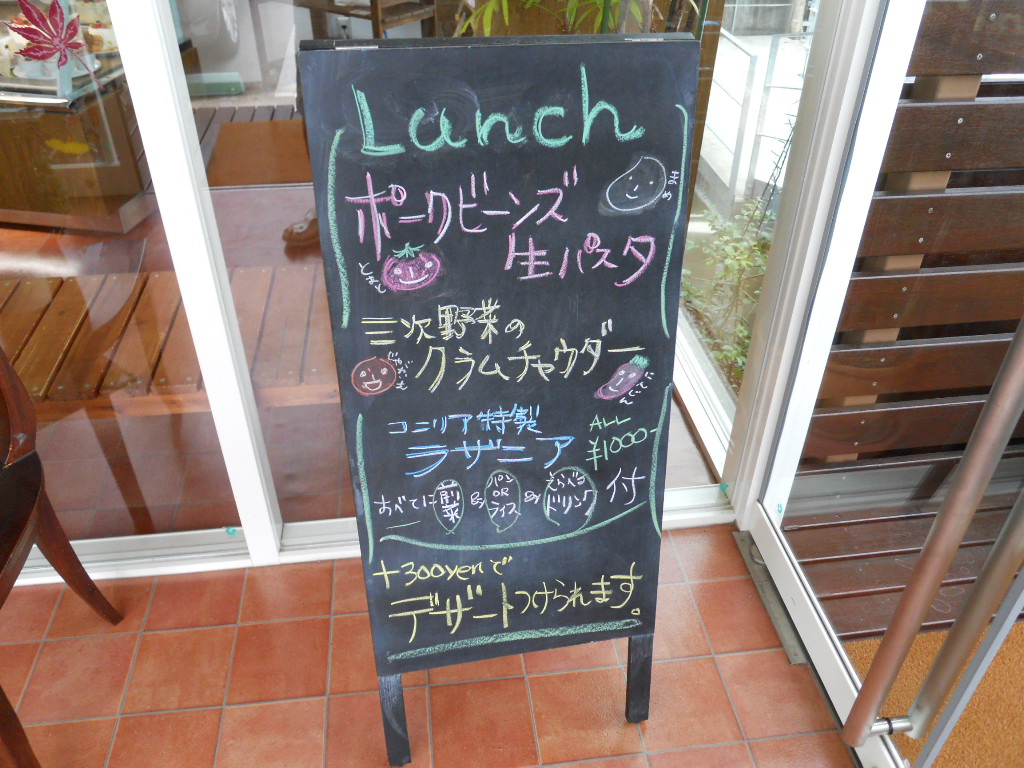 Lunch
ポークビーンズ
生パスタ
三次野菜の
クラムチャウダー
コニリア特製
ラザニア
ALL
¥1000-
すべてに 製菜 & パン OR ライス & えらべる ドリンク 付
+300yenで
デザートつけられます。